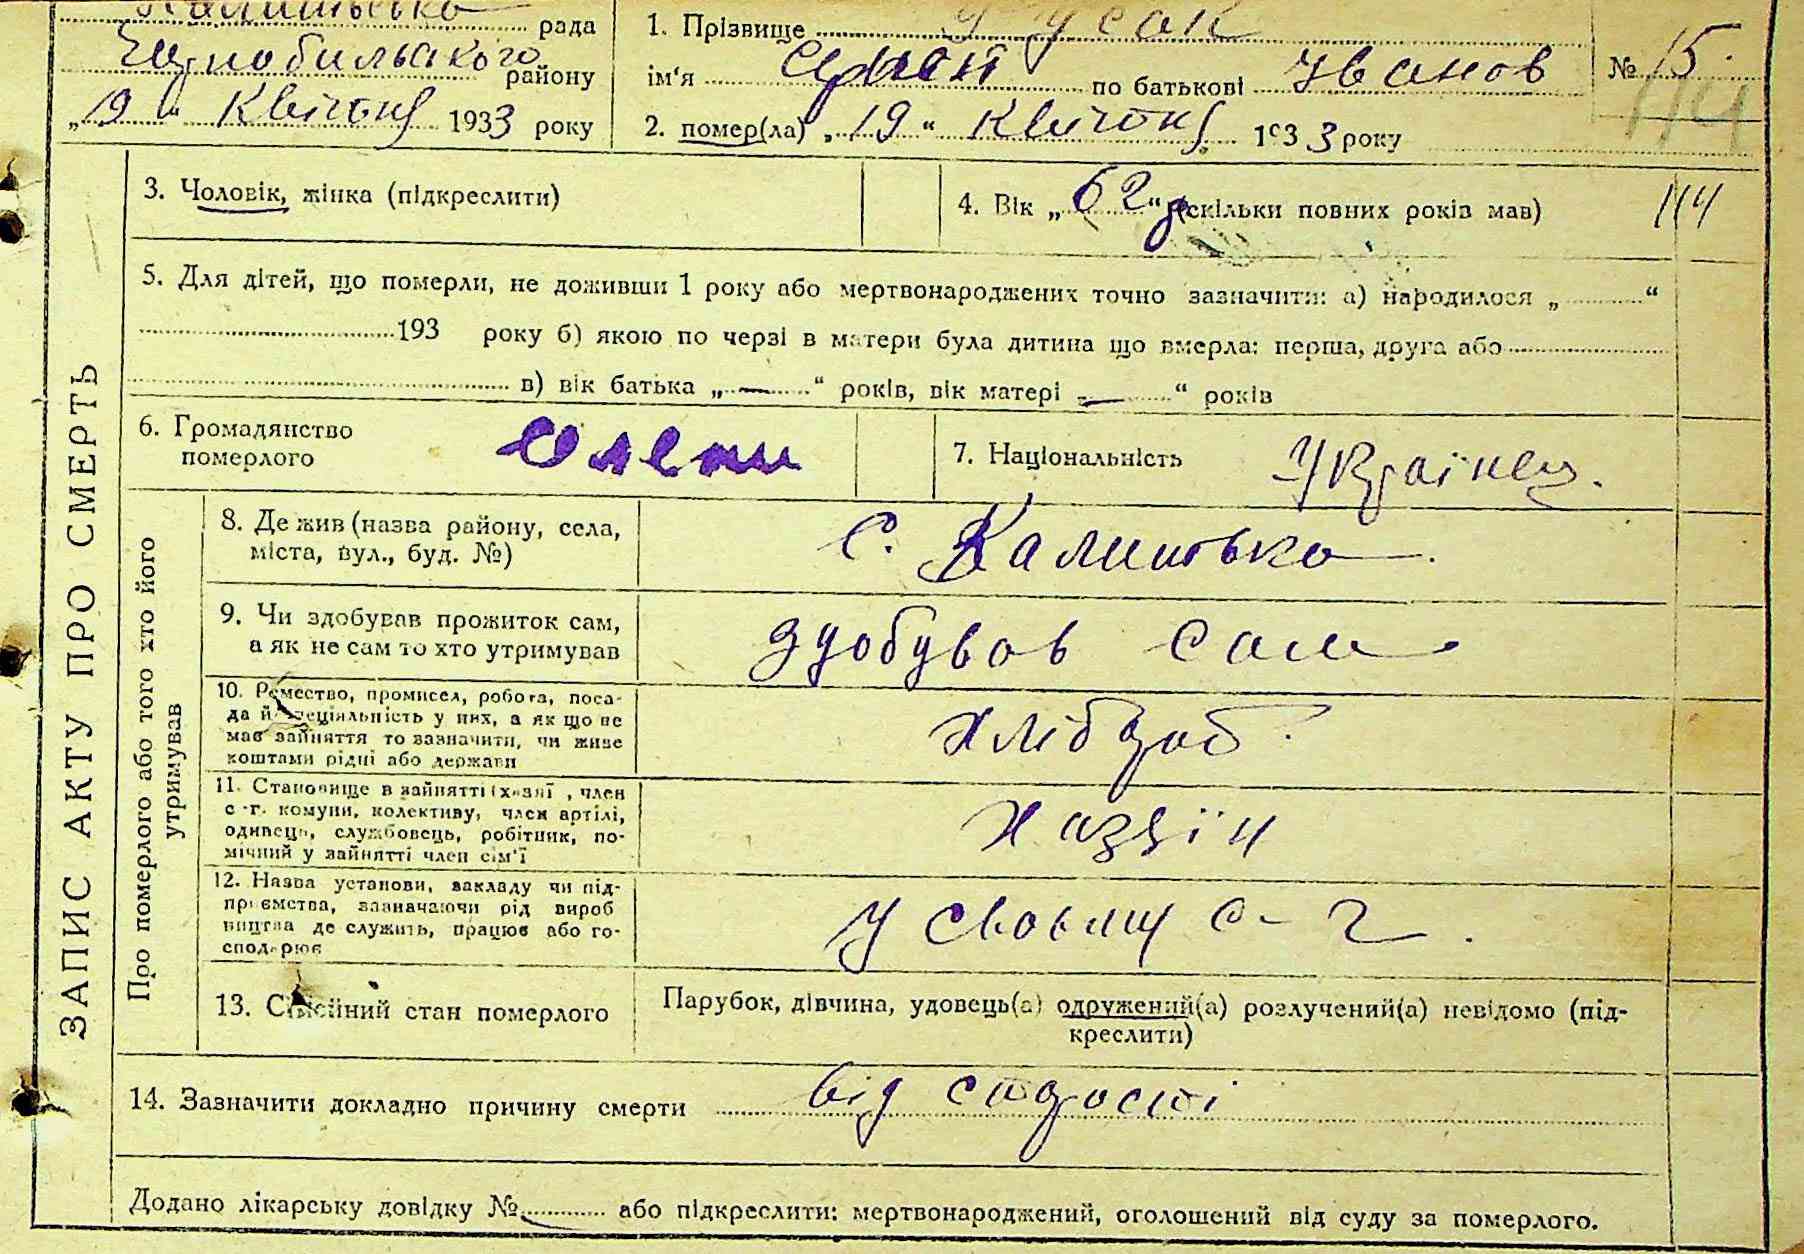 рада
Чорнобильського району
„19“ Квітня 1933 року
1. Прізвище Гусак
ім‘я Сергій по батькові Іванов
2. помер(ла) „19“ Квітня 1933 року
№ 15.
114
3. Чоловік, жінка (підкреслити)
4. Вік „62“ р (скільки повних років мав)
114
5. Для дітей, що померли, не доживши 1 року або мертвонароджених точно зазначити: а) народилося „ “
193 року б) якою по черзі в матери була дитина що вмерла: перша, друга або
в) вік батька „—“ років, вік матері „—“ років
6. Громадянство
померлого
7. Національність Українец.
ЗАПИС АКТУ ПРО СМЕРТЬ
Про померлого або того хто його
утримував
8. Де жив (назва району, села,
міста, вул., буд. №)
с.
9. Чи здобував прожиток сам,
а як не сам то хто утримував
здобував сам
10. Ремество, промисел, робота, поса-
да й спеціяльність у них, а як що не
має зайняття то зазначити, чи живе
коштами рідні або держави
Хлібороб.
11. Становище в зайнятті (хазяї , член
с-г. комуни, колективу, член артілі,
одинець, службовець, робітник, по-
мічний у зайнятті член сім‘ї
Хазяїн
12. Назва установи, закладу чи під-
приємства, зазначаючи рід вироб
ництва де служить, працює або го-
сподарює
У своєму с-г.
13. Сімейний стан померлого
Парубок, дівчина, удовець(а) одружений(а) розлучений(а) невідомо (під-
креслити)
14. Зазначити докладно причину смерти від старості
Додано лікарську довідку № або підкреслити: мертвонароджений, оголошений від суду за померлого.